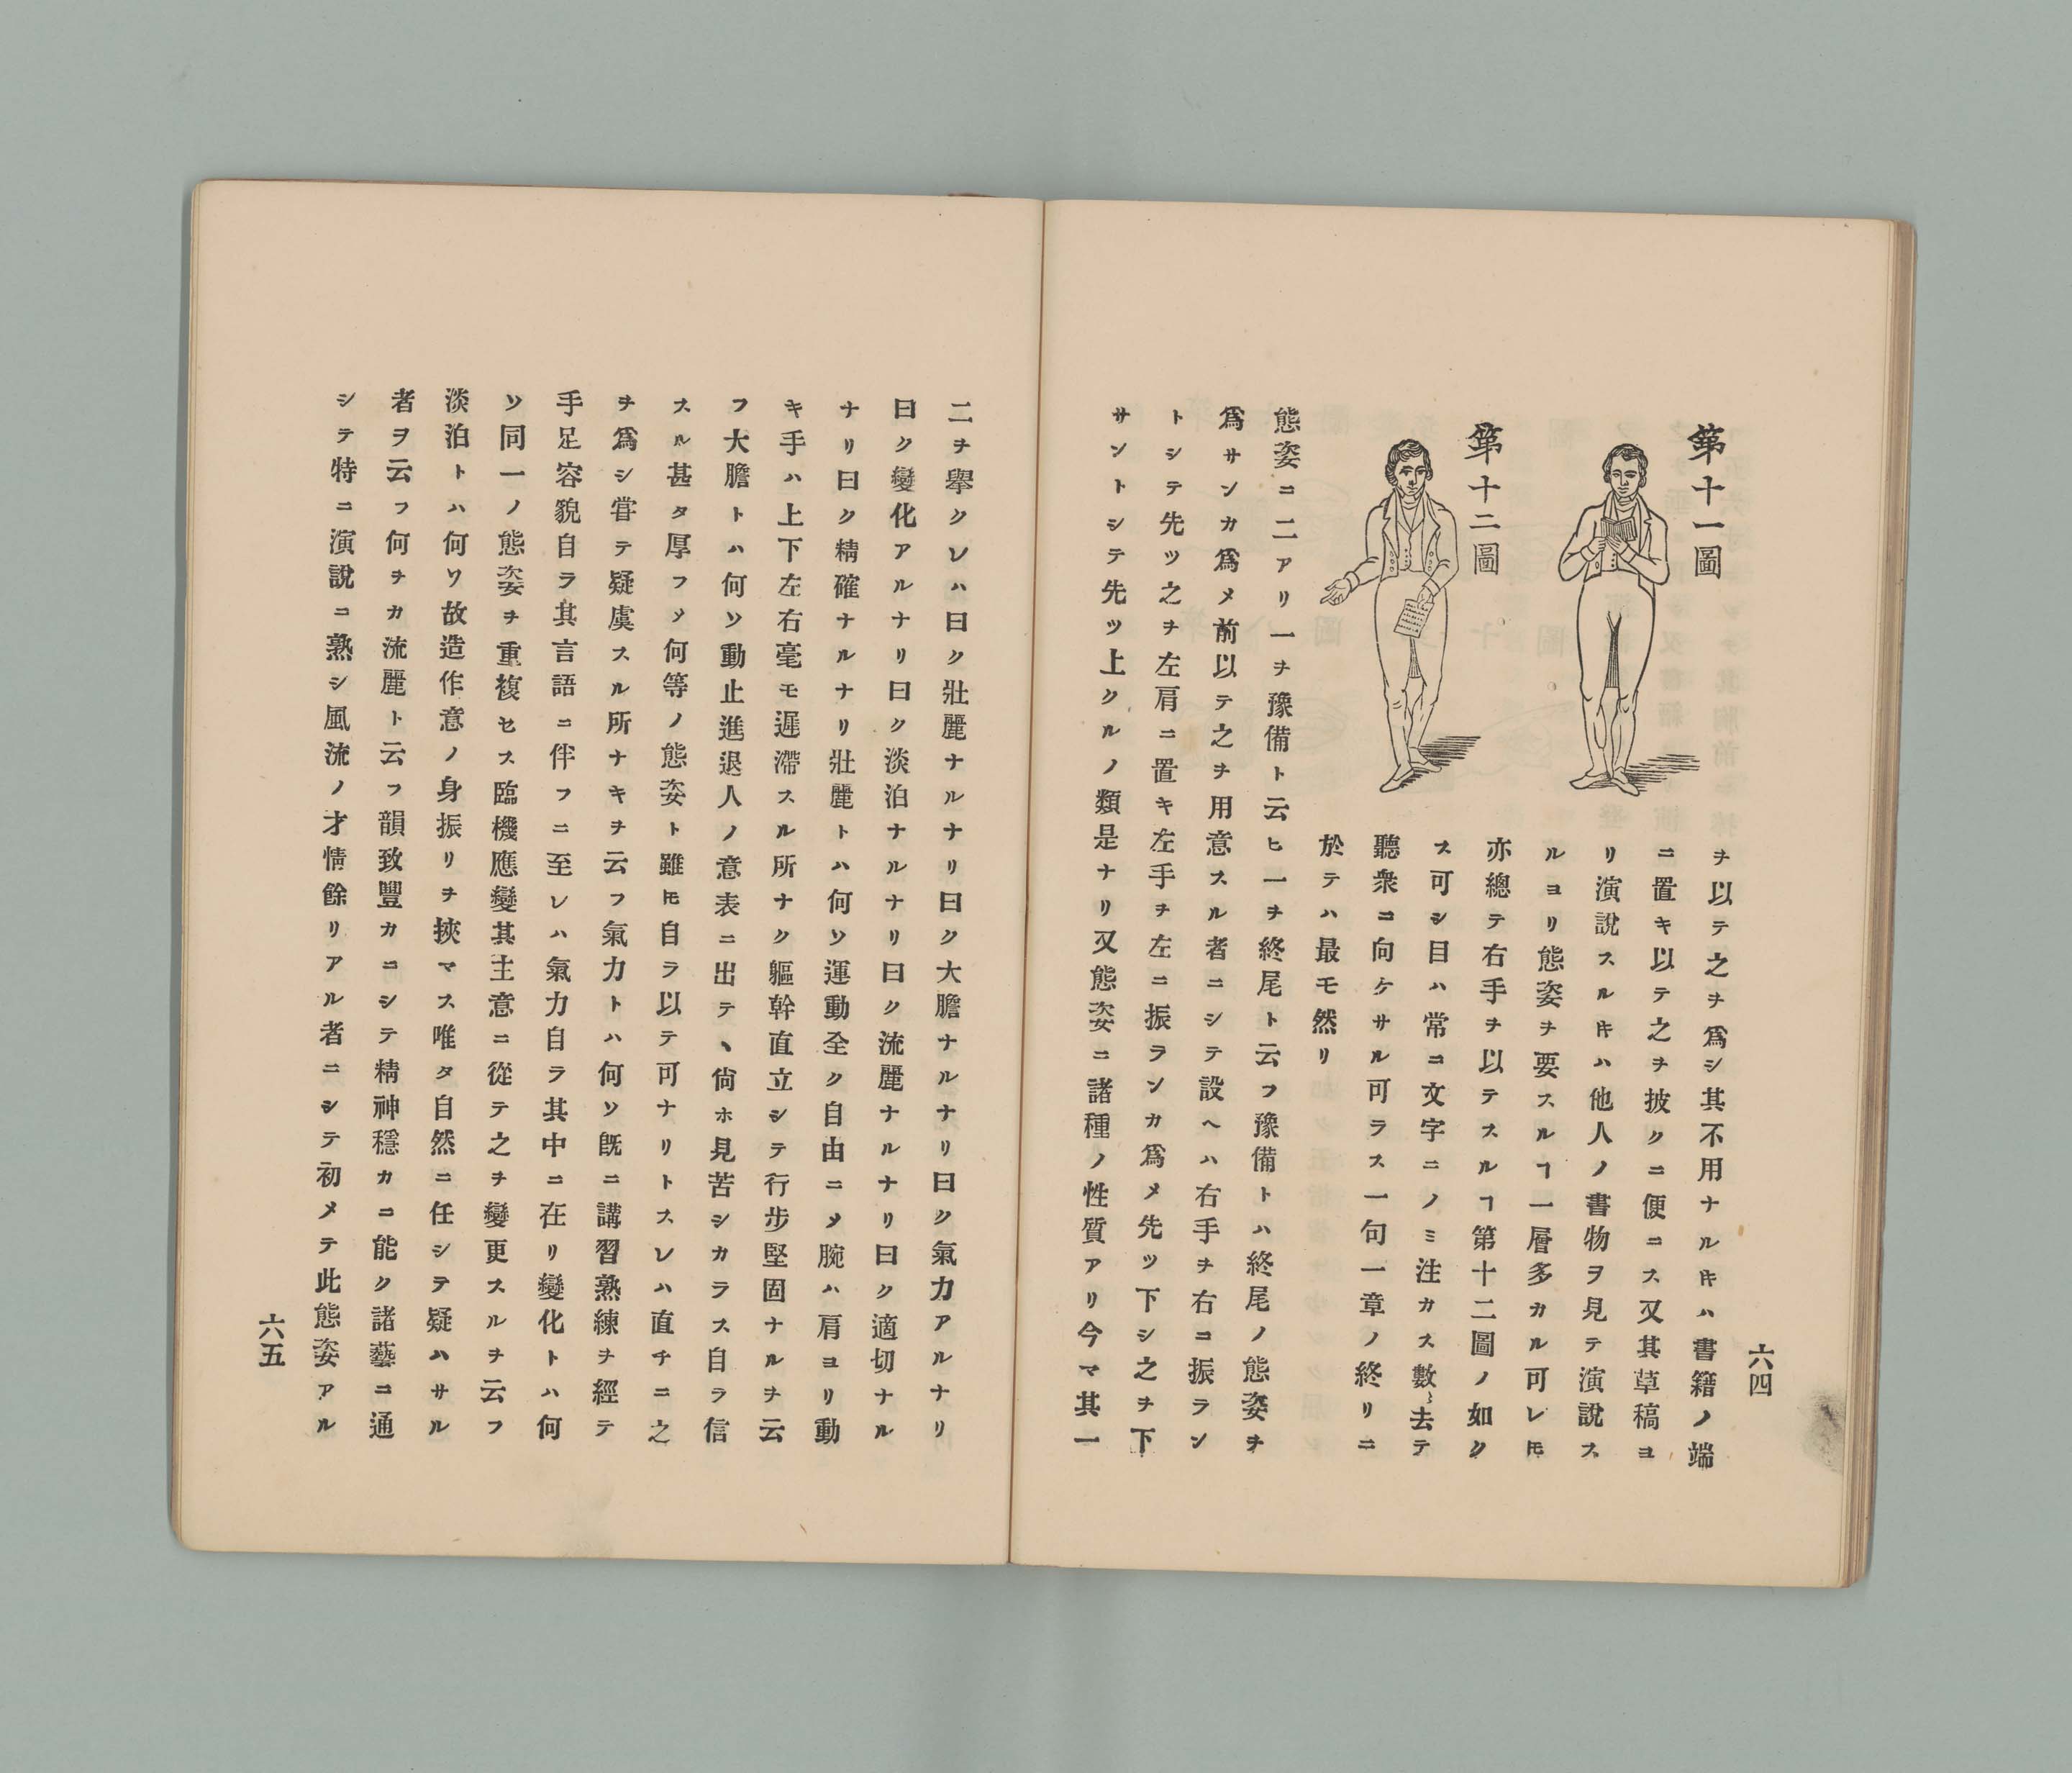 第十一圖
第十二圖
ヲ以テ之ヲ爲シ其不用ナルヰハ書籍ノ端
ニ置キ以テ之ヲ披クニ便ニス又其草稿ヨ
リ演說スルヰハ他人ノ書物ヲ見テ演說ス
ルヨリ態姿ヲ要スルヿ一層多カル可レ𪜈
亦總テ右手ヲ以テスルヿ第十二圖ノ如ク
ス可シ目ハ常ニ文字ニノミ注カス數〻去テ
聽衆ニ向ケサル可ラス一句一章ノ終リニ
於テハ最モ然リ
態姿ニ二アリ一ヲ豫備ト云ヒ一ヲ終尾ト云フ豫備トハ終尾ノ態姿ヲ
爲サンカ爲メ前以テ之ヲ用意スル者ニシテ設ヘハ右手ヲ右ニ振ラン
トシテ先ツ之ヲ左肩ニ置キ左手ヲ左ニ振ランカ爲メ先ツ下シ之ヲ下
サントシテ先ツ上クルノ類是ナリ又態姿ニ諸種ノ性質アリ今マ其一
六四
二ヲ擧クレハ曰ク壯麗ナルナリ曰ク大膽ナルナリ曰ク氣力アルナリ
曰ク變化アルナリ曰ク淡泊ナルナリ曰ク流麗ナルナリ曰ク適切ナル
ナリ曰ク精確ナルナリ壯麗トハ何ソ運動全ク自由ニ〆腕ハ肩ヨリ動
キ手ハ上下左右毫モ遲滯スル所ナク軀幹直立シテ行步堅固ナルヲ云
フ大膽トハ何ソ動止進退人ノ意表ニ出テヽ尙ホ見苦シカラス自ラ信
スル甚タ厚フ〆何等ノ態姿ト雖𪜈自ラ以テ可ナリトスレハ直チニ之
ヲ爲シ甞テ疑虞スル所ナキヲ云フ氣力トハ何ソ旣ニ講習熟練ヲ經テ
手足容貌自ラ其言語ニ伴フニ至レハ氣力自ラ其中ニ在リ變化トハ何
ソ同一ノ態姿ヲ重複セス臨機應變其主意ニ從テ之ヲ變更スルヲ云フ
淡泊トハ何ソ故造作意ノ身振リヲ挾マス唯タ自然ニ任シテ疑ハサル
者ヲ云フ何ヲカ流麗ト云フ韻致豐カニシテ精神穩カニ能ク諸藝ニ通
シテ特ニ演說ニ熟シ風流ノ才情餘リアル者ニシテ初メテ此態姿アル
六五